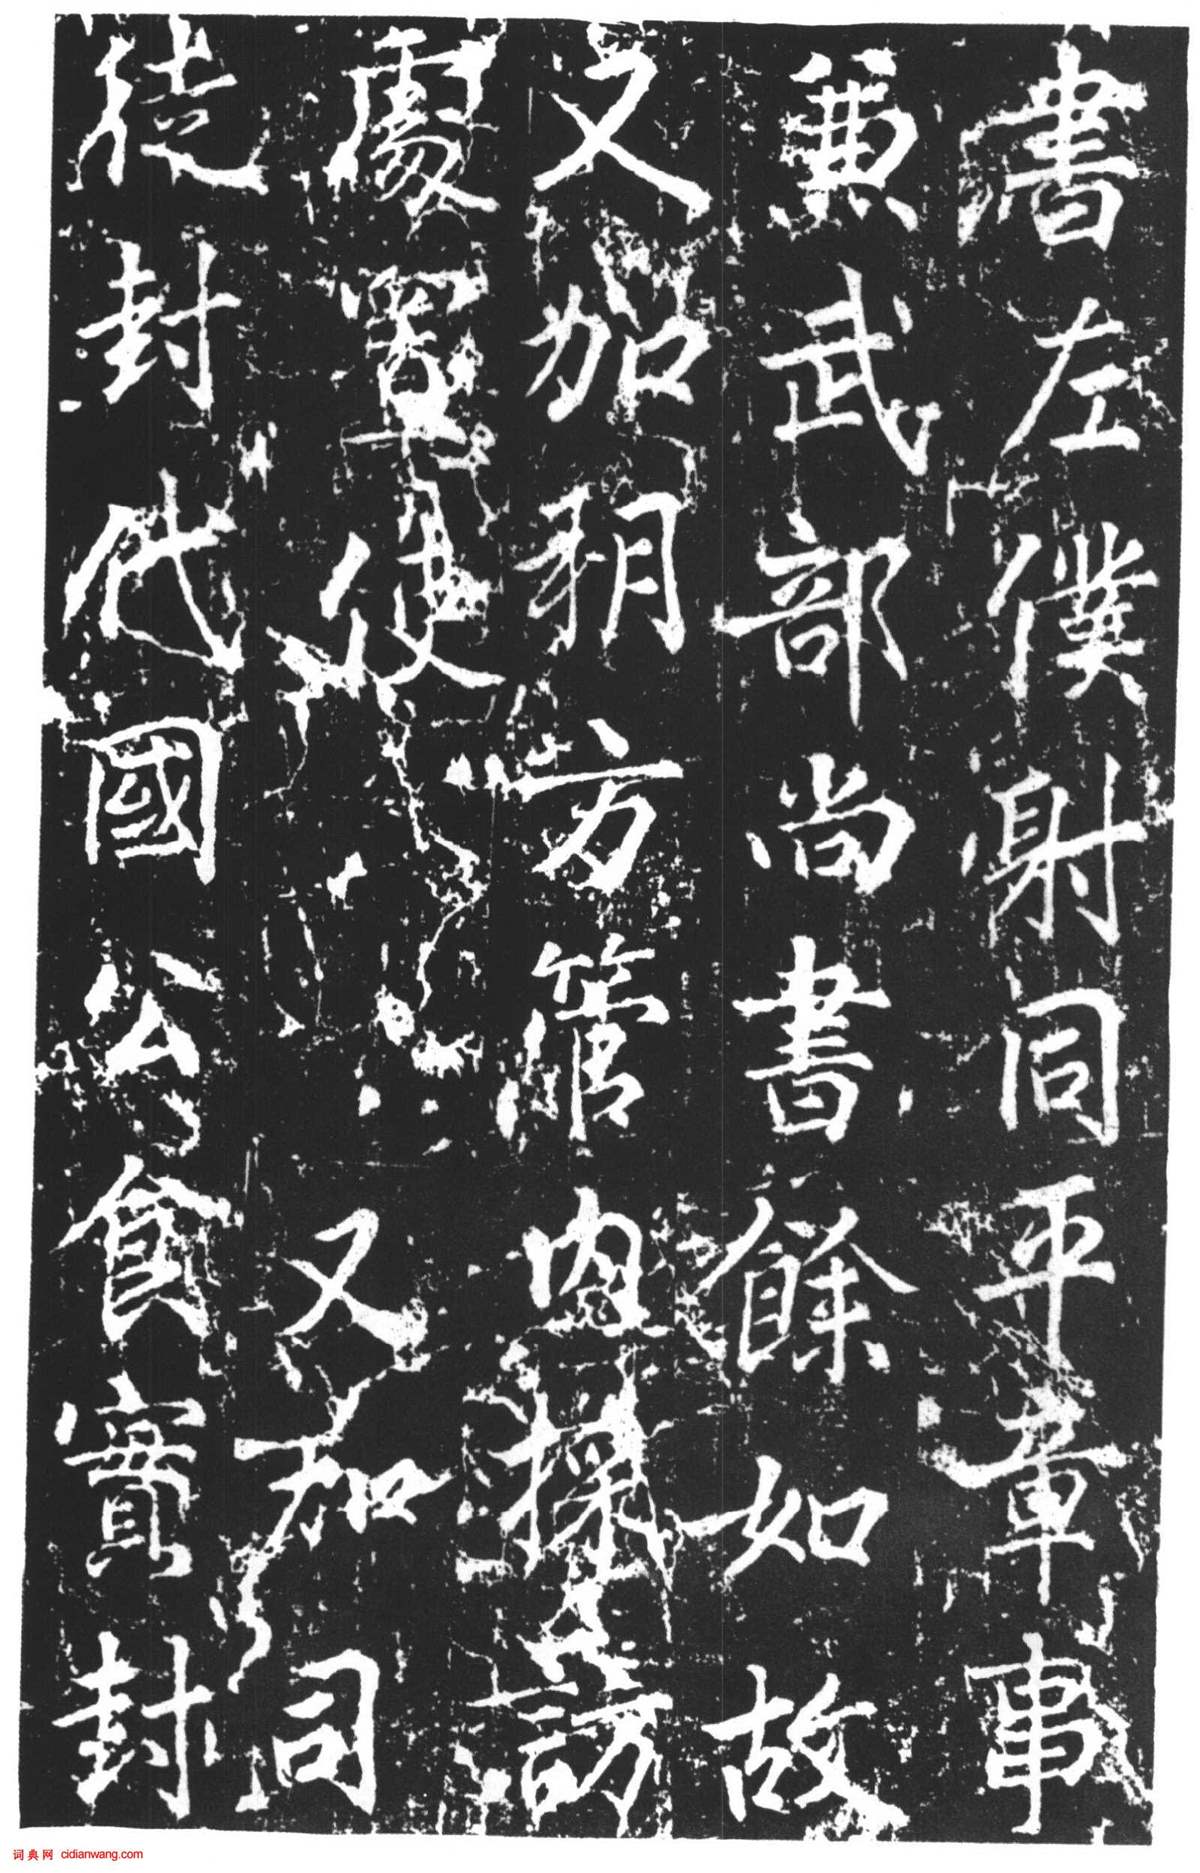 書左僕射同平章事
兼武部尚書餘如故
又加朔方管内採訪
處置使又加司
徒封代國公食實封
词典网 cidianwang.com